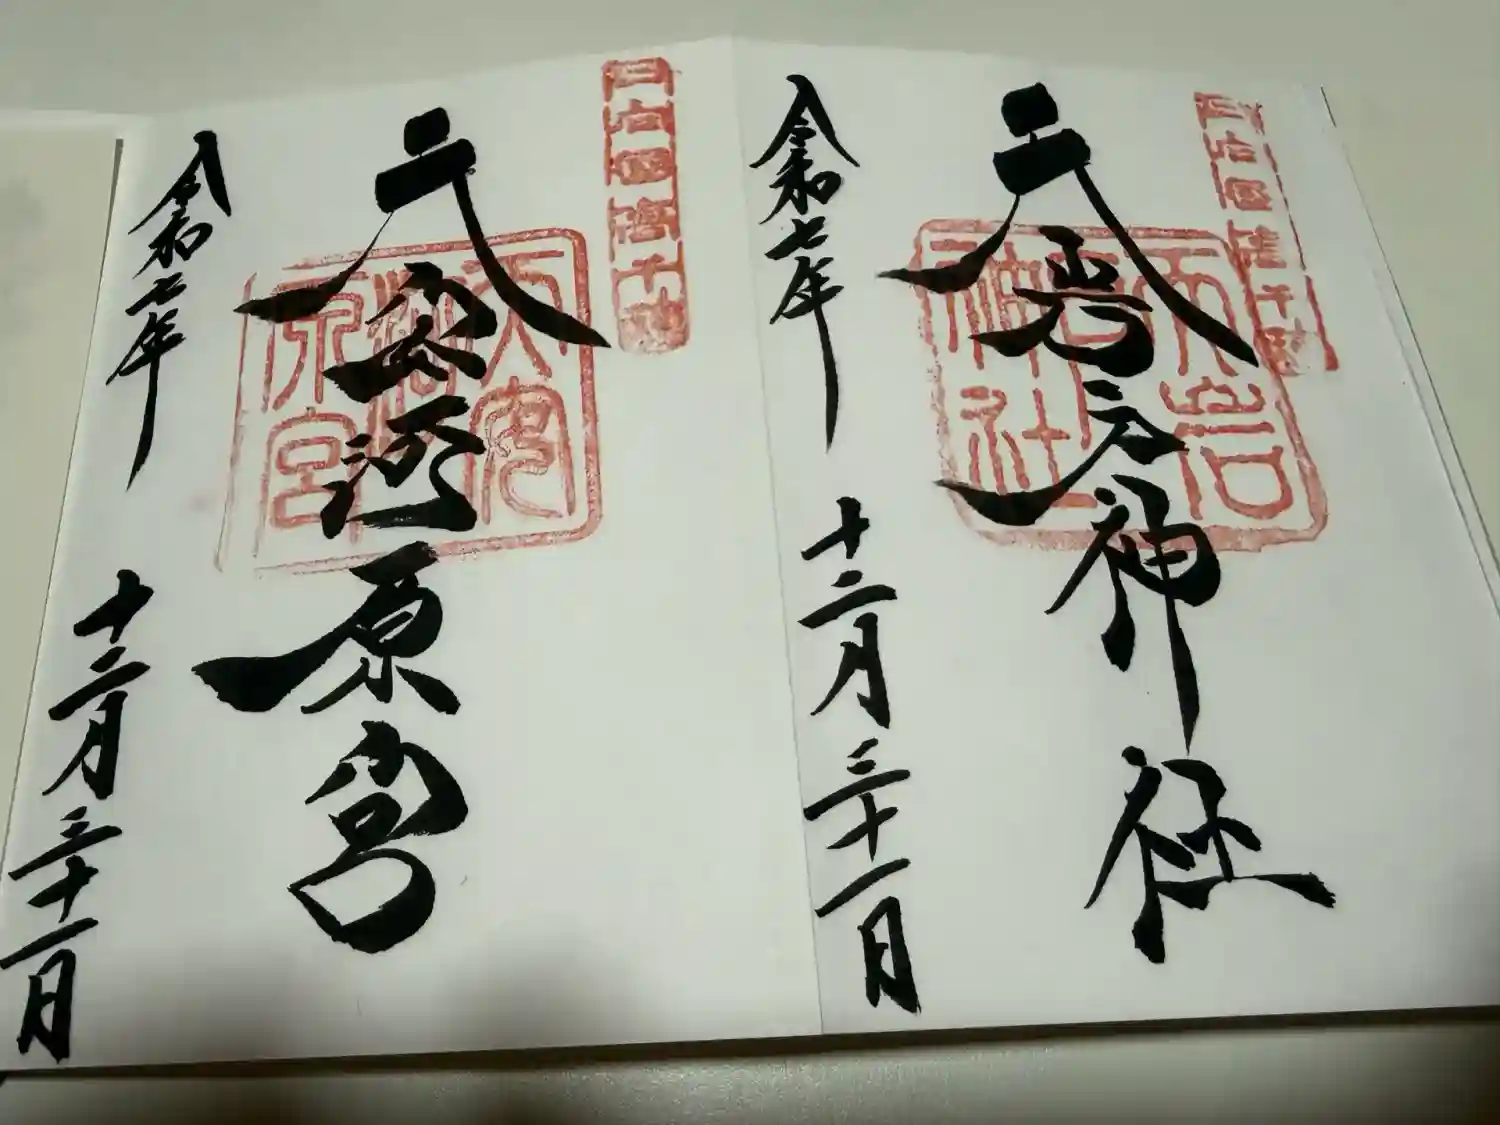 日向國高千穂
天岩戸神社
天岩戸神社
令和七年 十二月三十一日
日向國高千穂
天安河原宮
天安河原宮
令和七年 十二月三十一日